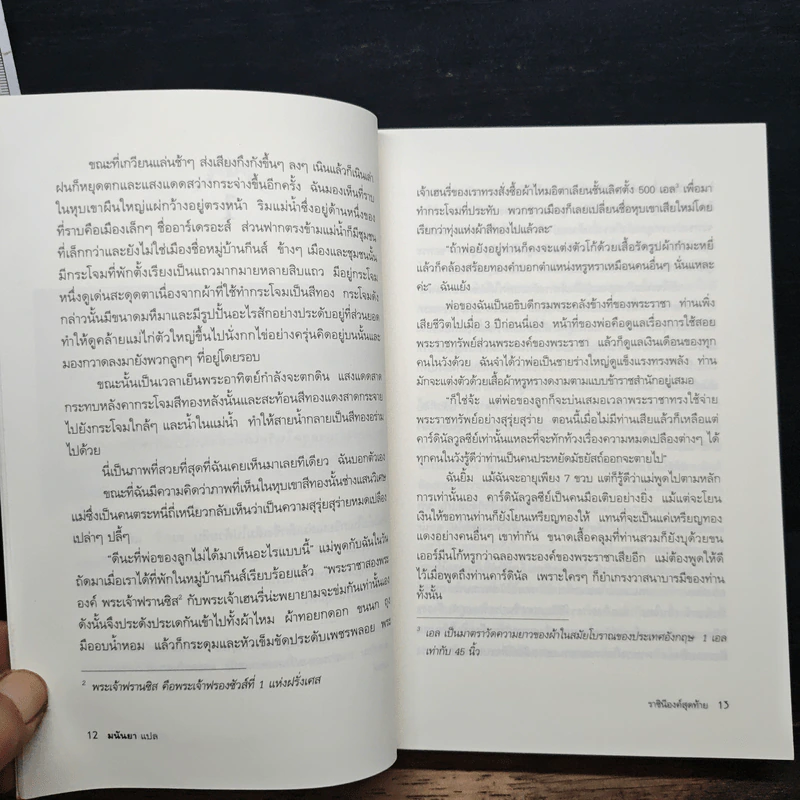 ขณะที่เกวียนแล่นช้าๆ ส่งเสียงกึงกังขึ้นๆ ลงๆ เนินแล้วก็เนินเล่า
ฝนก็หยุดตกและแสงแดดสว่างกระจ่างขึ้นอีกครั้ง ฉันมองเห็นที่ราบ
ในหุบเขาผืนใหญ่แผ่กว้างอยู่ตรงหน้า ริมแม่น้ำซึ่งอยู่ด้านหนึ่งของ
ที่ราบคือเมืองเล็กๆ ชื่ออาร์เดรอะส์ ส่วนฟากตรงข้ามแม่น้ำก็มีชุมชน
ที่เล็กกว่าและยังไม่ใช่เมืองชื่อหมู่บ้านกีนส์ ข้างๆ เมืองและชุมชนนั้น
มีกระโจมที่พักตั้งเรียงเป็นแถวมากมายหลายสิบแถว มีอยู่กระโจม
หนึ่งดูเด่นสะดุดตาเนื่องจากผ้าที่ใช้ทำกระโจมเป็นสีทอง กระโจมดัง
กล่าวนั้นมีขนาดมหึมาและมีรูปปั้นอะไรสักอย่างประดับอยู่ที่ส่วนยอด
ทำให้ดูคล้ายแม่ไก่ตัวใหญ่ขึ้นไปนั่งกกไข่อย่างครุ่นคิดอยู่บนนั้นและ
มองกวาดลงมายังพวกลูกๆ ที่อยู่โดยรอบ
ขณะนั้นเป็นเวลาเย็นพระอาทิตย์กำลังจะตกดิน แสงแดดสาด
กระทบหลังคากระโจมสีทองหลังนั้นและสะท้อนสีทองแดงสาดกระจาย
ไปยังกระโจมใกล้ๆ และน้ำในแม่น้ำ ทำให้สายน้ำกลายเป็นสีทองอร่าม
ไปด้วย
นี่เป็นภาพที่สวยที่สุดที่ฉันเคยเห็นมาเลยทีเดียว ฉันบอกตัวเอง
ขณะที่ฉันมีความคิดว่าภาพที่เห็นในหุบเขาสีทองนั้นช่างแสนวิเศษ
แม่ซึ่งเป็นคนตระหนี่ถี่เหนียวกลับเห็นว่าเป็นความสุรุ่ยสุร่ายหมดเปลือง
เปล่าๆ ปลี้ๆ
"ดีนะที่พ่อของลูกไม่ได้มาเห็นอะไรแบบนี้" แม่พูดกับฉันในวัน
ถัดมาเมื่อเราได้ที่พักในหมู่บ้านกีนส์เรียบร้อยแล้ว "พระราชาสองพระ
องค์ พระเจ้าฟรานซิส² กับพระเจ้าเฮนรี่น่ะพยายามจะข่มกันเท่านั้นเอง
ดังนั้นจึงประดังประเดกันเข้าไปทั้งผ้าไหม ผ้าทอยกดอก ขนนก ถุง
มืออบน้ำหอม แล้วก็กระดุมและหัวเข็มขัดประดับเพชรพลอย พระ
² พระเจ้าฟรานซิส คือพระเจ้าฟรองซัวส์ที่ 1 แห่งฝรั่งเศส
12 มนันยา แปล
เจ้าเฮนรี่ของเราทรงสั่งซื้อผ้าไหมอิตาเลียนชั้นเลิศตั้ง 500 เอล³ เพื่อมา
ทำกระโจมที่ประทับ พวกชาวเมืองก็เลยเปลี่ยนชื่อหุบเขาเสียใหม่โดย
เรียกว่าทุ่งแห่งผ้าสีทองไปแล้วละ"
"ถ้าพ่อยังอยู่ท่านก็คงจะแต่งตัวโก้ด้วยเสื้อรัดรูปผ้ากำมะหยี่
แล้วก็คล้องสร้อยทองคำบอกตำแหน่งหรูหราเหมือนคนอื่นๆ นั่นแหละ
ค่ะ" ฉันแย้ง
พ่อของฉันเป็นอธิบดีกรมพระคลังข้างที่ของพระราชา ท่านเพิ่ง
เสียชีวิตไปเมื่อ 3 ปีก่อนนี่เอง หน้าที่ของพ่อคือดูแลเรื่องการใช้สอย
พระราชทรัพย์ส่วนพระองค์ของพระราชา แล้วก็ดูแลเงินเดือนของทุก
คนในวังด้วย ฉันจำได้ว่าพ่อเป็นชายร่างใหญ่ดูแข็งแรงทรงพลัง ท่าน
มักจะแต่งตัวด้วยเสื้อผ้าหรูหรางดงามตามแบบข้าราชสำนักอยู่เสมอ
"ก็ใช่จ้ะ แต่พ่อของลูกก็จะบ่นเสมอเวลาพระราชาทรงใช้จ่าย
พระราชทรัพย์อย่างสุรุ่ยสุร่าย ตอนนี้เมื่อไม่มีท่านเสียแล้วก็เหลือแต่
คาร์ดินัลวูลซีย์เท่านั้นแหละที่จะทักท้วงเรื่องความหมดเปลืองต่างๆ ได้
ทุกคนในวังรู้ดีว่าท่านเป็นคนประหยัดมัธยัสถ์ออกจะตายไป"
ฉันยิ้ม แม้ฉันจะอายุเพียง 7 ขวบ แต่ก็รู้ดีว่าแม่พูดไปตามหลัก
การเท่านั้นเอง คาร์ดินัลวูลซีย์เป็นคนมือเติบอย่างยิ่ง แม้แต่จะโยน
เงินให้ขอทานท่านก็ยังโยนเหรียญทองให้ แทนที่จะเป็นแค่เหรียญทอง
แดงอย่างคนอื่นๆ เขาทำกัน ขนาดเสื้อคลุมที่ท่านสวมก็ยังบุด้วยขน
เออร์มีนโก้หรูกว่าฉลองพระองค์ของพระราชาเสียอีก แม่ต้องพูดให้ดี
ไว้เมื่อพูดถึงท่านคาร์ดินัล เพราะใครๆ ก็ยำเกรงวาสนาบารมีของท่าน
ทั้งนั้น
³ เอล เป็นมาตราวัดความยาวของผ้าในสมัยโบราณของประเทศอังกฤษ 1 เอล
เท่ากับ 45 นิ้ว
ราชินีองค์สุดท้าย 13